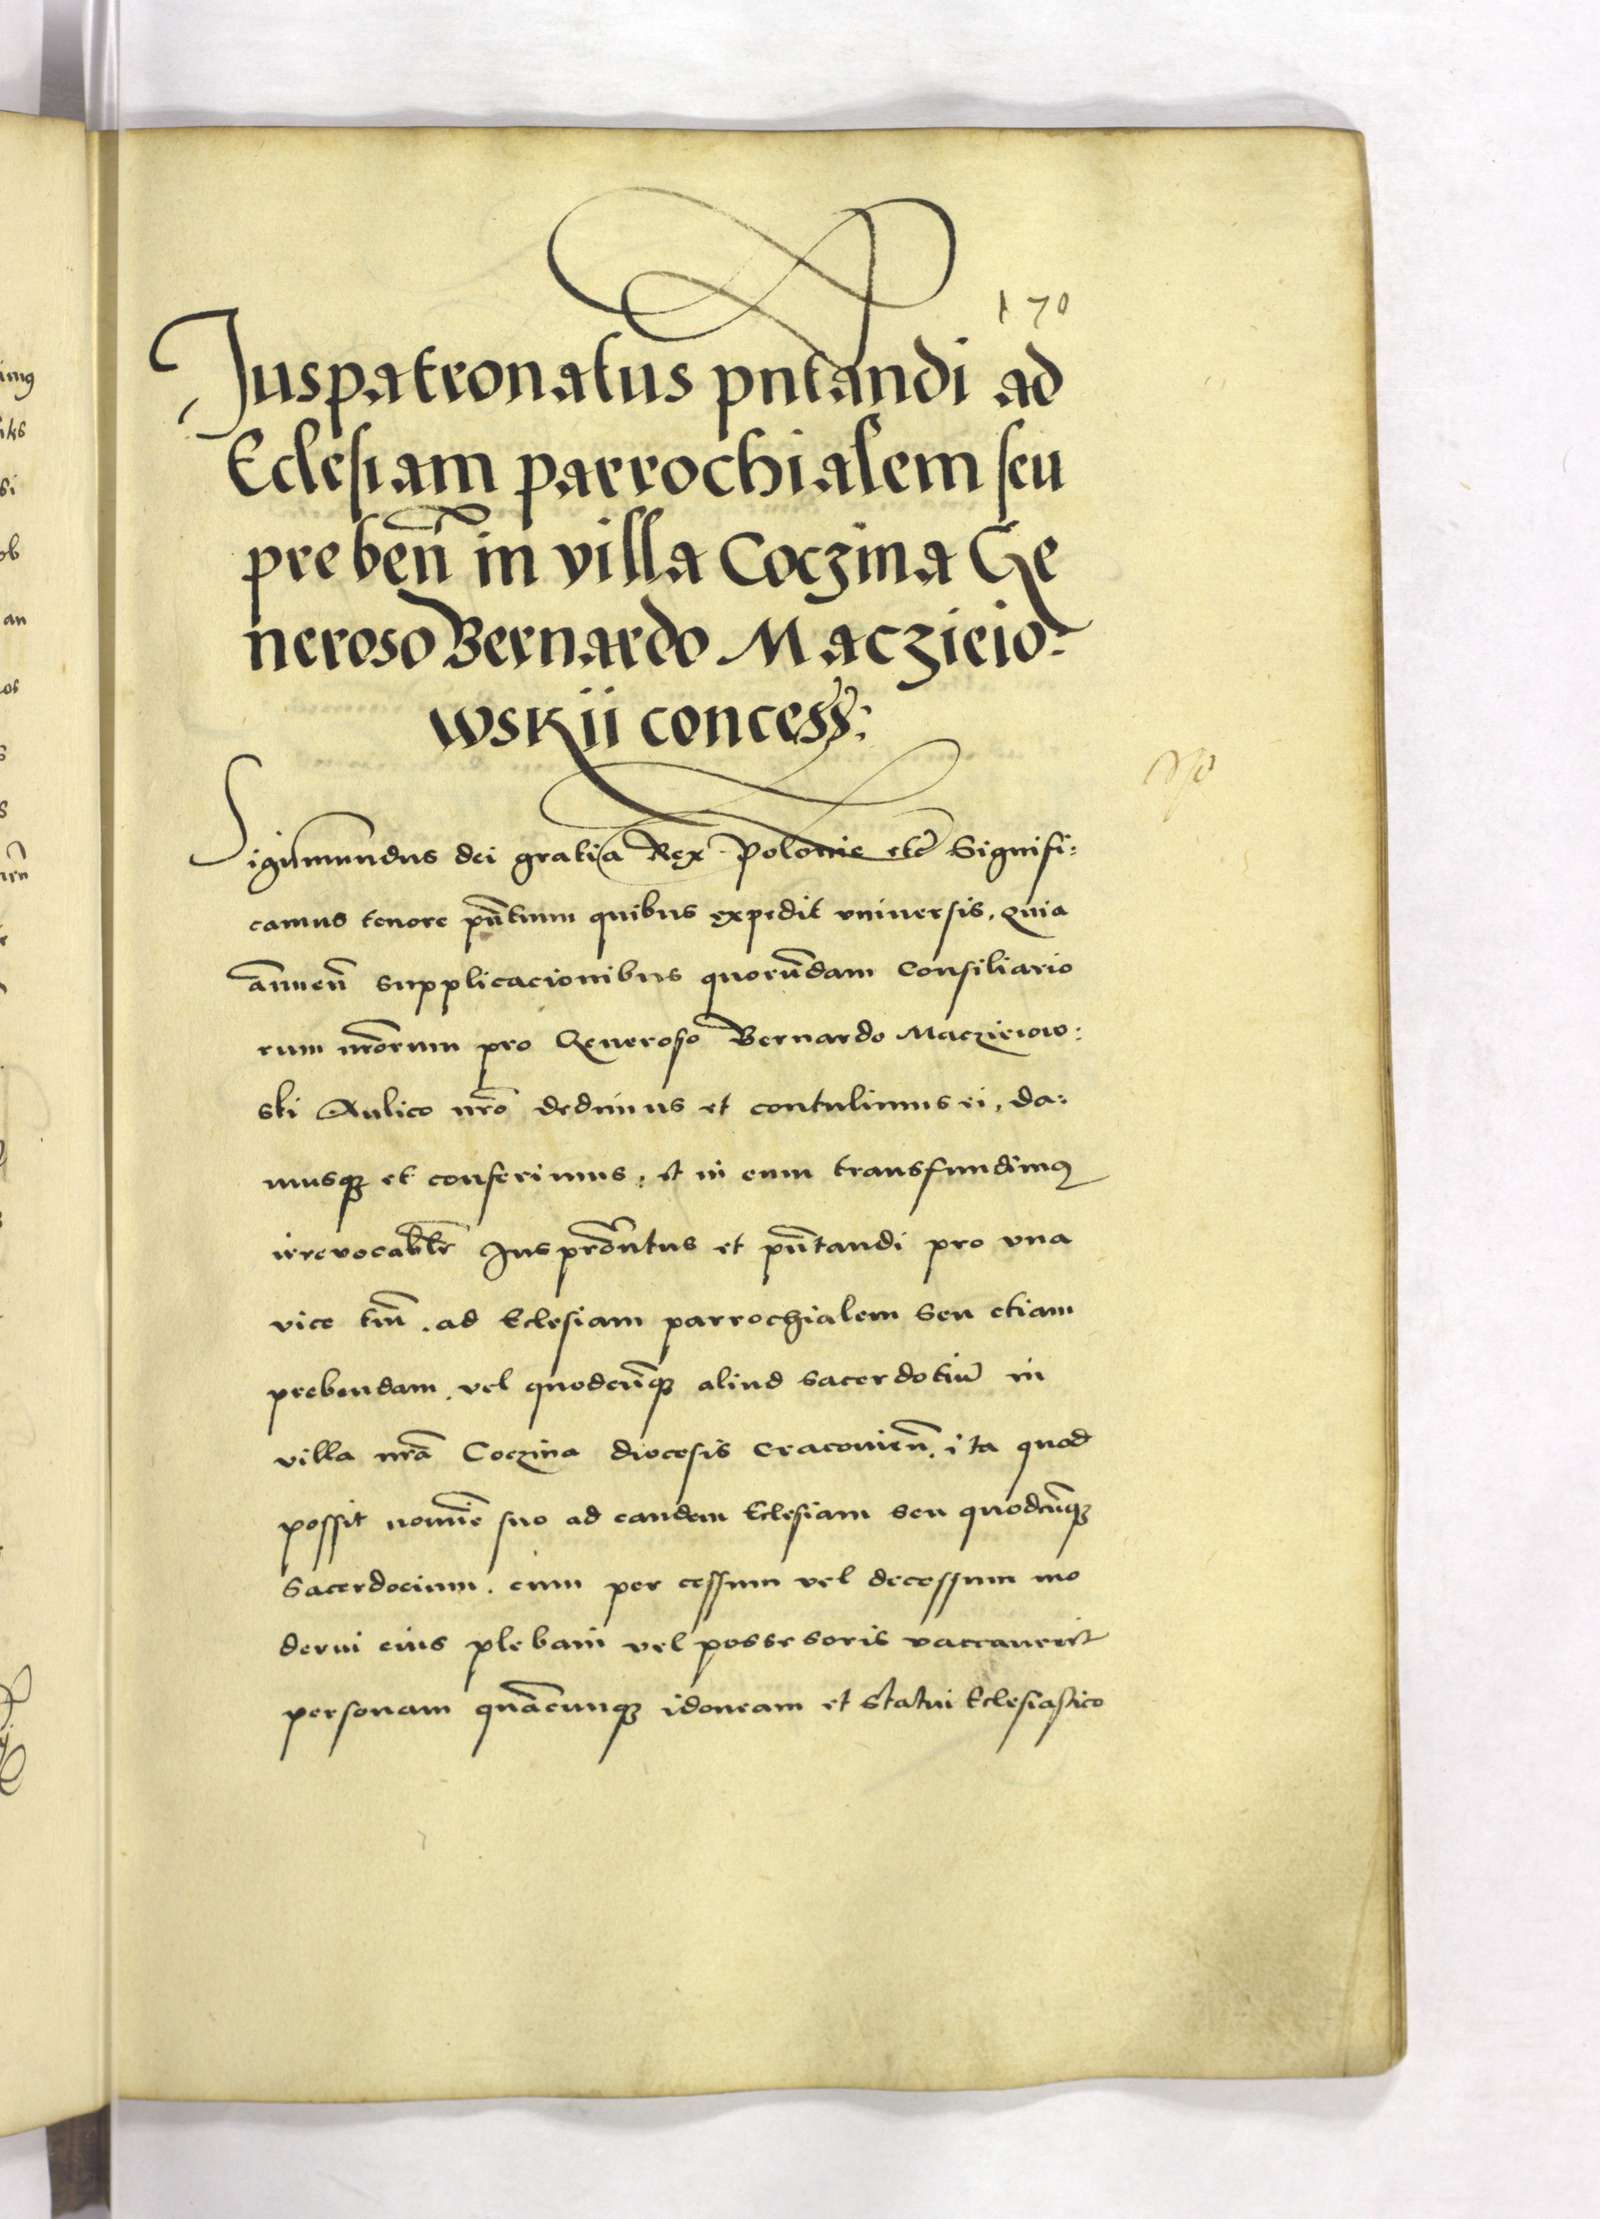 170
Juspatronatus pntandi ad
Eclesiam parrochialem seu
preben̄ in villa Coczina Ge
neroso Bernardo Maczieio-
wskii concess:
Sigismundus dei gratia Rex Polonie etc̄ Signifi:
camus tenore pn̄tium quibus expedit vniuersis, quia
an̄uen̄ supplicacionibus quorūdam Consiliario
rum nr̄orum pro Generoso Bernardo Maczieiow:
ski Aulico nr̄o dedimus et contulimus ei, da:
musqꝫ et conferimus, et in eum transfundimꝰ
irreuocabl̄r Jus pr̄ontus et pn̄tandi pro vna
vice tm̄. ad Eclesiam parrochialem seu etiam
prebendam. vel quodcūqꝫ aliud sacerdotiū in
villa nr̄a Coczina diocesis Cracouien̄. ita quod
possit nomīe suo ad eandem Eclesiam seu quodcūqꝫ
sacerdocium. cum per cessum vel decessum mo
derni eius plebani vel possesoris vaccauerit
personam quācunqꝫ idoneam et statui Eclesiastico